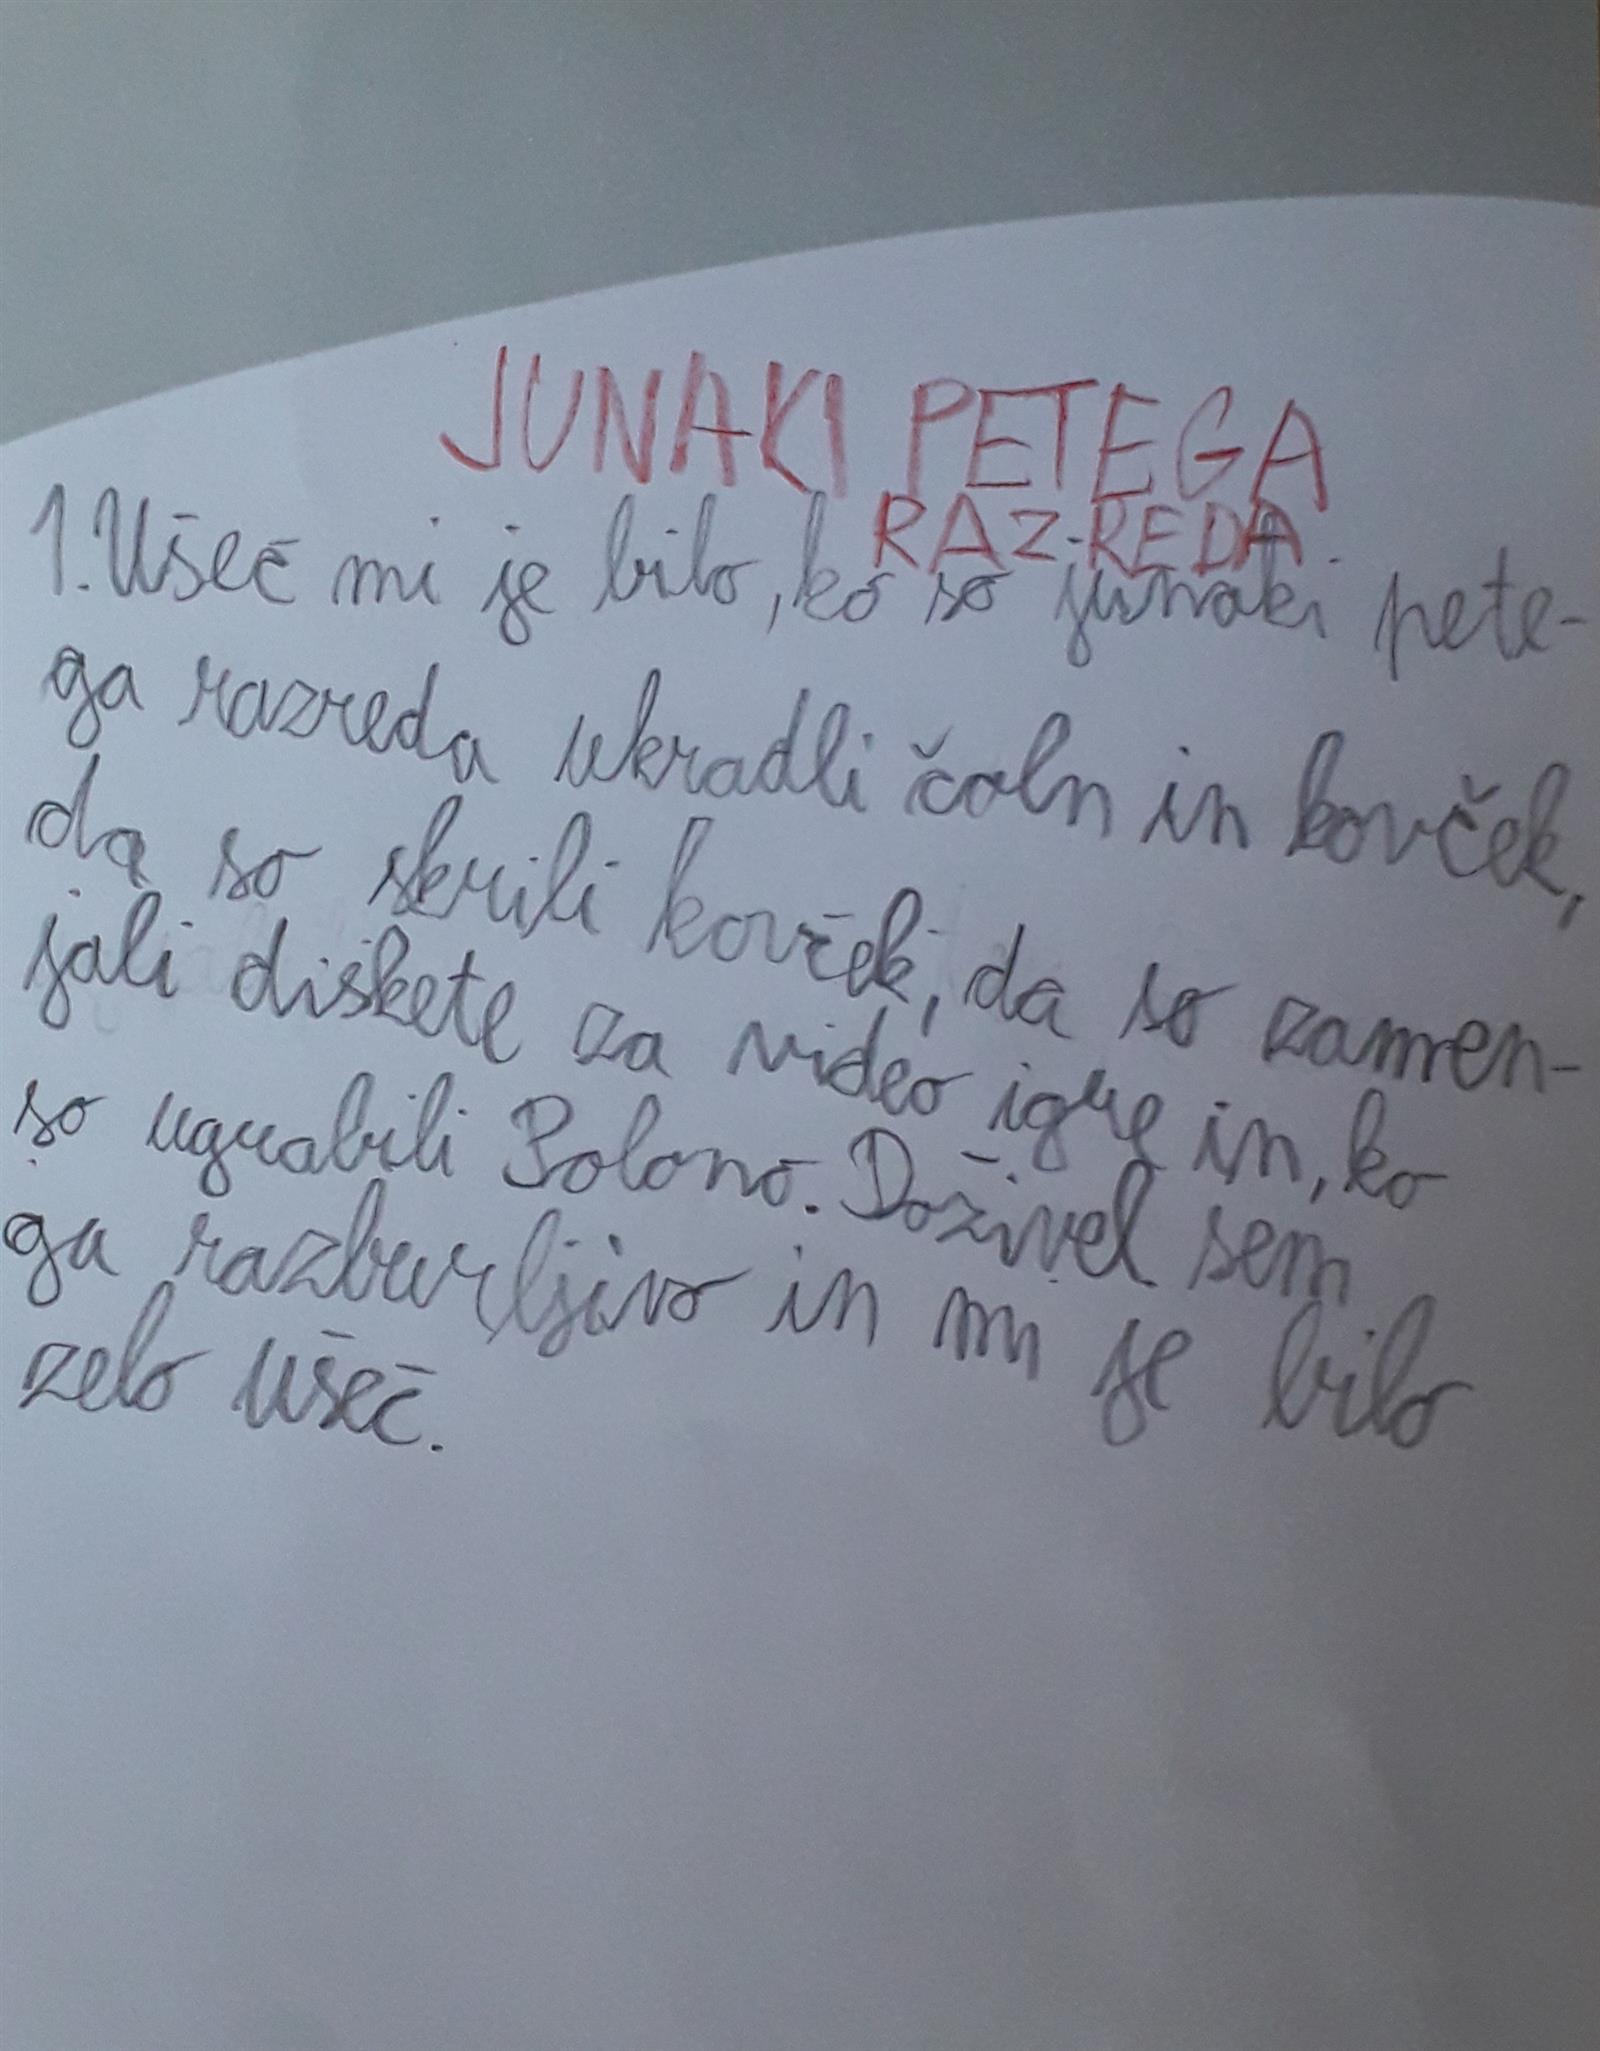 JUNAKI PETEGA
RAZREDA
1. Všeč mi je bilo, ko so junaki pete-
ga razreda ukradli čoln in kovček,
da so skrili kovček, da so zamen-
jali diskete za video igre in, ko
so ugrabili Polono. Doživel sem
ga razburljivo in mi je bilo
zelo všeč.